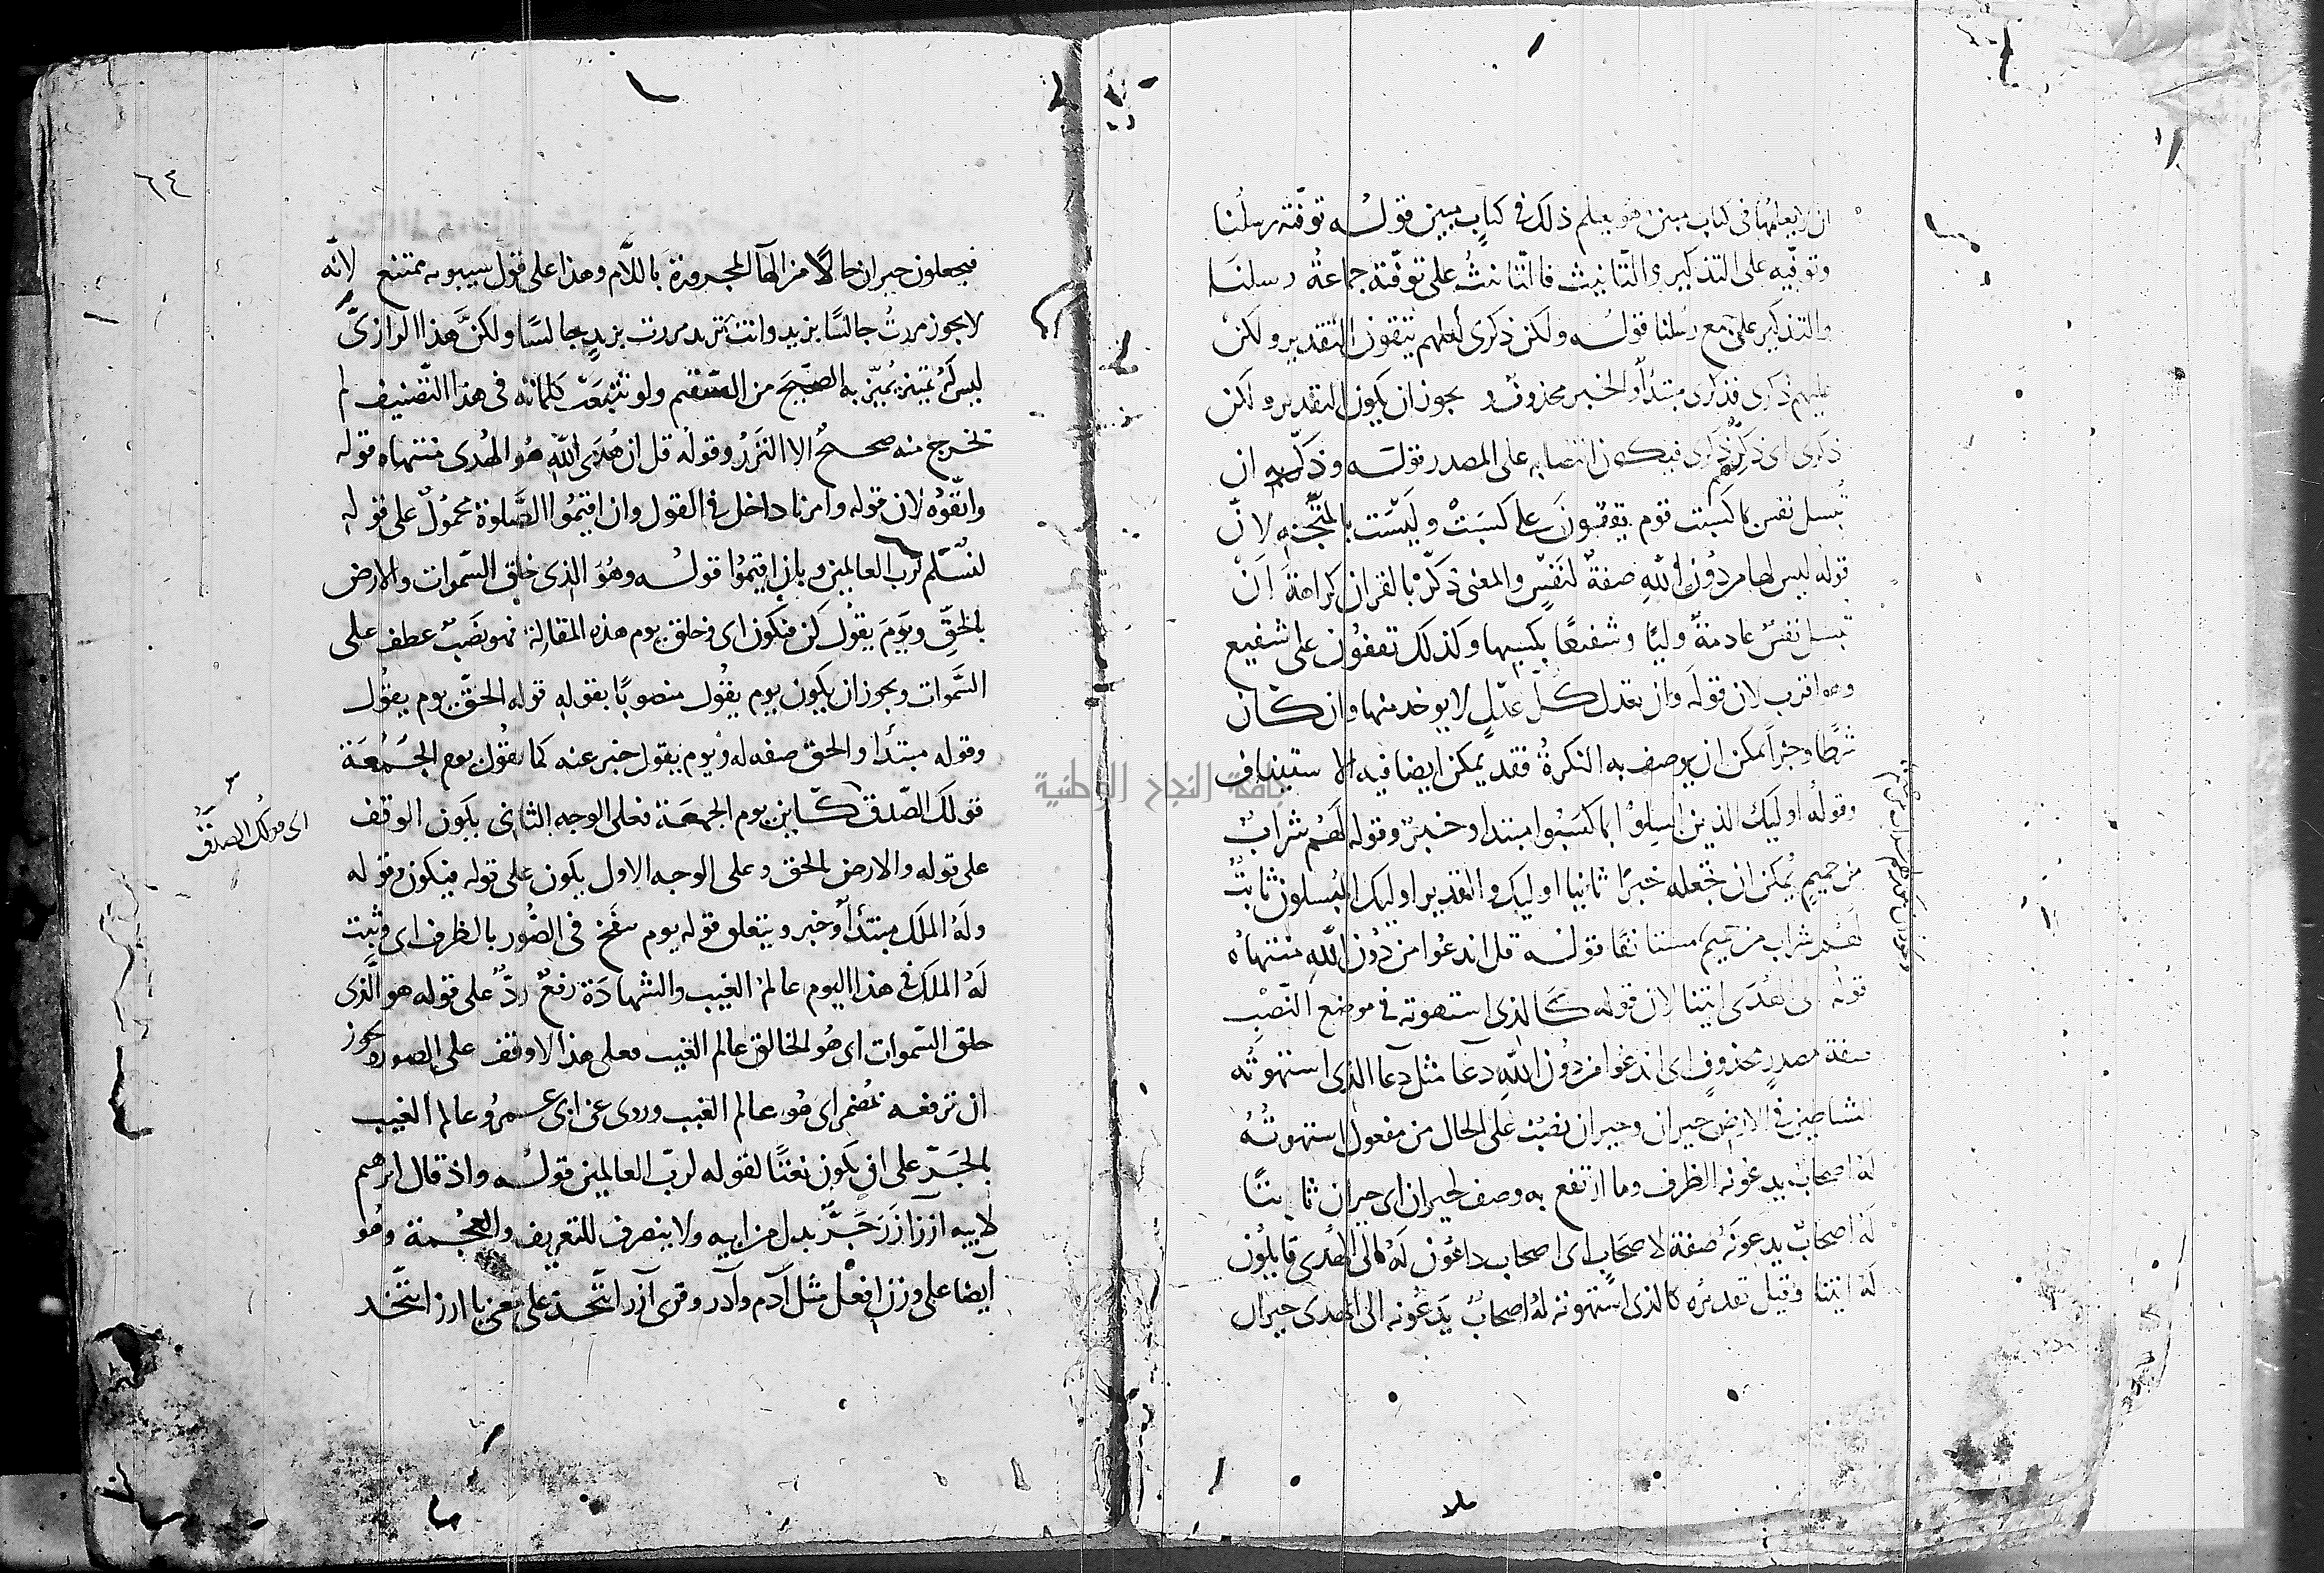 ان لا يعلمها في كتاب مبين هو يعلم ذلك في كتاب مبين قوله توفته رسلنا
وتوفيه على التذكير والتانيث فالتانيث على توفته جماعة رسلنا
والتذكير على جمع رسلنا قوله ولكن ذكرى لعلهم يتقون التقدير ولكن
عليهم ذكرى فذكرى مبتدأ والخبر محذوف ويجوز ان يكون التقدير ولكن
ذكرى اى ذكرهم ذكرى فيكون انتصابه على المصدر قوله وذكر به ان
تبسل نفس بما كسبت قوم يقفون على كسبت وليست بالمتجه لان
قوله ليس لها من دون الله صفة لنفس والمعنى ذكر بالقران كراهة ان
تبسل نفس عادمة وليا وشفيعا بكسبها وكذلك تقفون على شفيع
وهو اقرب لان قوله وان تعدل كل عدل لا يوخذ منها وان كان
شرطا وجزا يمكن ان يوصف به النكرة فقد يمكن ايضا فيه الاستيناف
وقوله اوليك الذين ابسلوا بما كسبوا مبتدا وخبر وقوله لهم شراب
من حميم يمكن ان تجعله خبرا ثانيا اوليك والتقدير اوليك المبسلون ثابت
لهم شراب من حميم مستانفا قوله قل اندعوا من دون الله منتهاه
قوله الى الهدى ائتنا لان قوله كالذى استهوته في موضع النصب
صفة مصدر محذوف اى اندعوا من دون الله دعا مثل دعا الذى استهوته
الشاطين في الارض حيران وحيران نصب على الحال من مفعول استهوته
له اصحاب يدعونه الظرف وما ارتفع به وصف لحيران اى حيران ثابتا
له اصحاب يدعونه صفة لاصحاب اى اصحاب داعون له الى الهدى قايلون
له ائتنا وقيل تقديره كالذى استهوته له اصحاب يدعونه الى الهدى حيران
٦٤
فيجعلون حيران حالا من الها المجرورة باللام وهذا على قول سيبويه ممتنع لانه
لا يجوز مررت جالسا بزيد وانت تريد مررت بزيد جالسا ولكن هذا الرازى
ليس له تمييز يميز به الصحيح من السقيم ولو تتبعت كلماته في هذا التصنيف لم
تخرج منه صحيح الا النزر وقوله قل ان هدى الله هو الهدى منتهاه قوله
واتقوه لان قوله وامرنا داخل في القول وان اقيموا الصلوة محمول على قوله
لنسلم لرب العالمين وبان اقيموا قوله وهو الذى خلق السموات والارض
بالحق ويوم يقول كن فيكون اى وخلق يوم هذه المقالة فهو نصب عطف على
السموات ويجوز ان يكون يوم يقول منصوبا بقوله قوله الحق يوم يقول
وقوله مبتدا والحق صفه له ويوم يقول خبر عنه كما تقول يوم الجمعة
قولك الصدق كاين يوم الجمعة فعلى الوجه الثانى يكون الوقف
على قوله والارض بالحق وعلى الوجه الاول يكون على قوله فيكون وقوله
وله الملك مبتدأ وخبر ويتعلق قوله يوم ينفخ في الصور بالظرف اى وثبت
له الملك في هذا اليوم عالم الغيب والشهادة رفع رد على قوله هو الذى
خلق السموات اى هو الخالق عالم الغيب فعلى هذا لا وقف على الصور ويجوز
ان ترفعه بمضمر اى هو عالم الغيب وروى عن ابى عمرو عالم الغيب
بالجر على ان يكون نعتا لقوله لرب العالمين قوله واذ قال ابرهيم
لابيه آزر ازر جر بدل من ابيه ولا ينصرف للتعريف والعجمة وهو
ايضا على وزن افعل مثل آدم وآدر وقرى آزر اتتخذ على معنى يا ازر اتتخذ
اى قولك الصدق